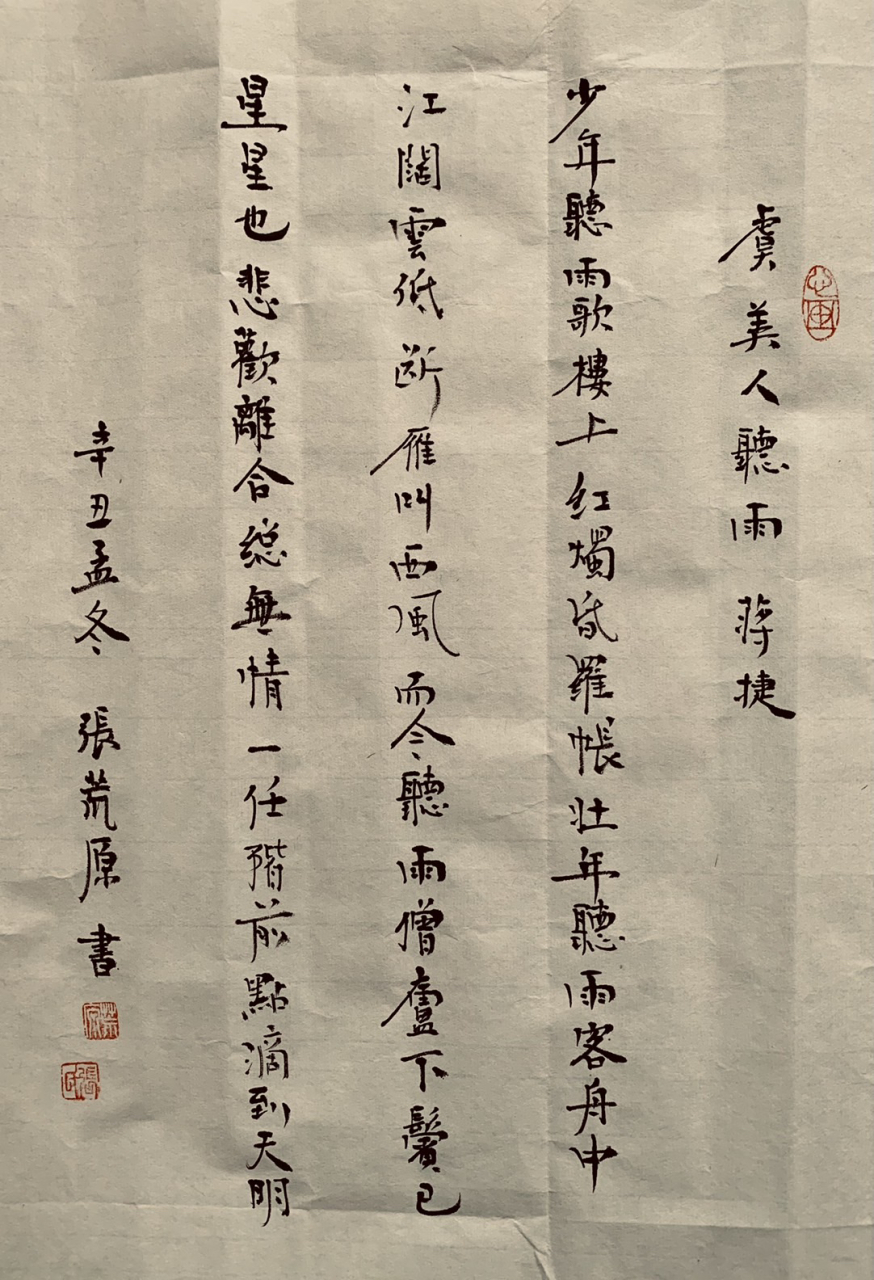 虞美人聽雨 蔣捷
少年聽雨歌樓上红燭昏羅帳壯年聽雨客舟中
江闊雲低断雁叫西風而今聽雨僧廬下鬢已
星星也悲歡離合総無情一任階前點滴到天明
辛丑孟冬 張荒原 書
荒原
張氏